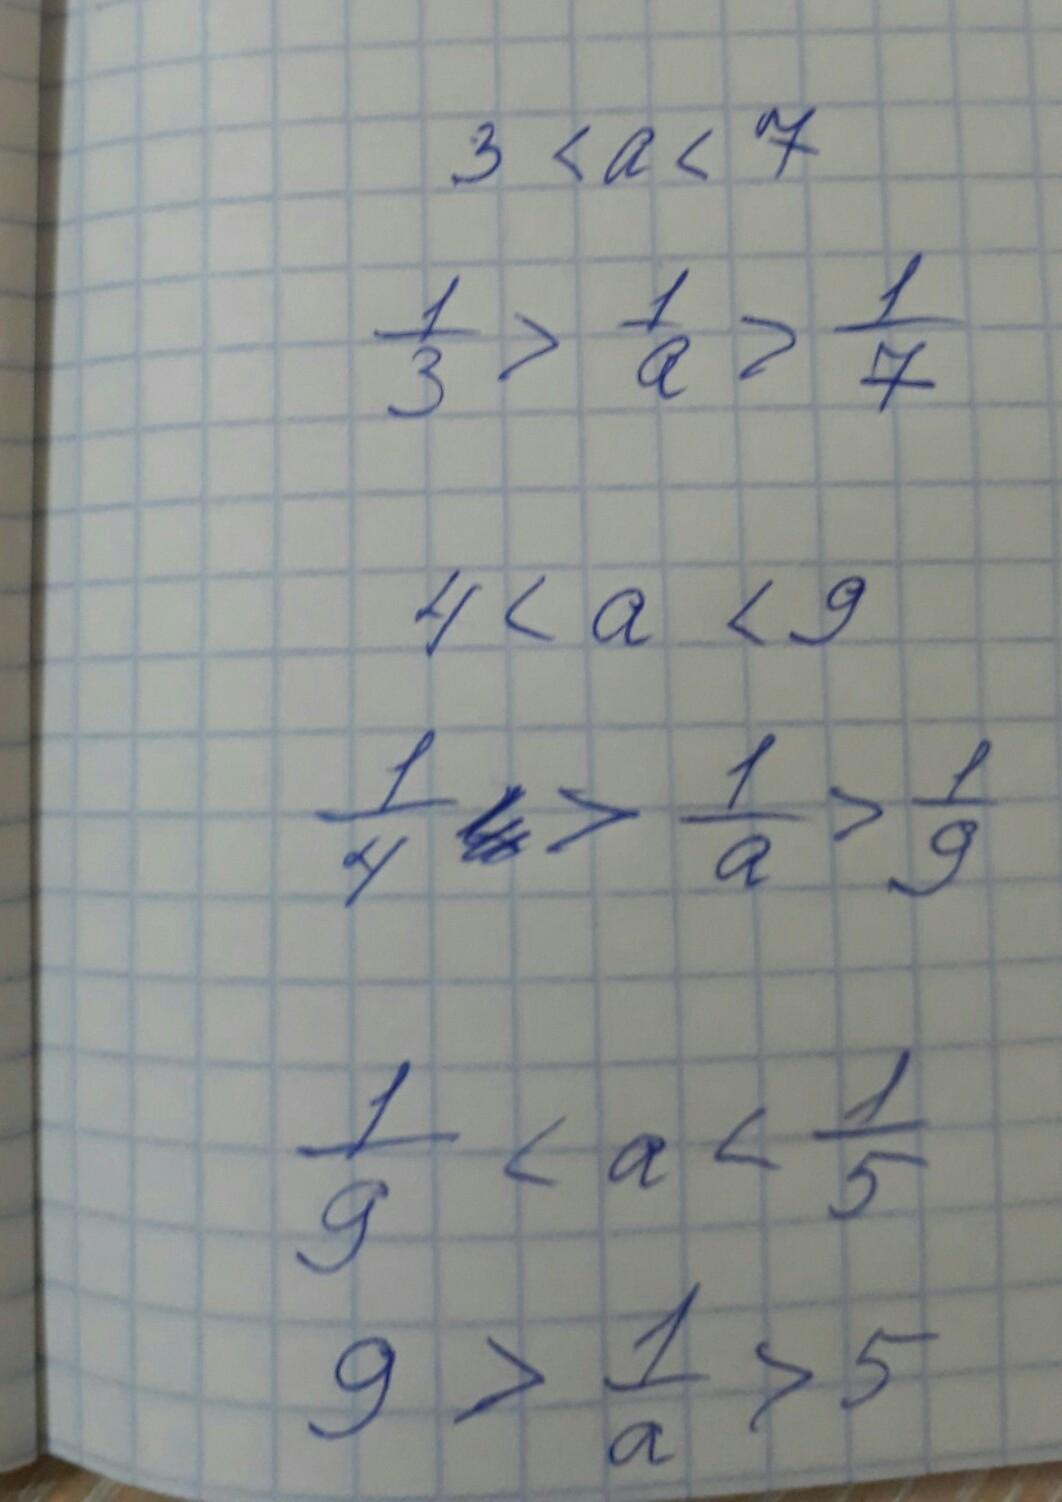 3 < a < 7
1/3 > 1/a > 1/7
4 < a < 9
1/4 > 1/a > 1/9
1/9 < a < 1/5
9 > 1/a > 5